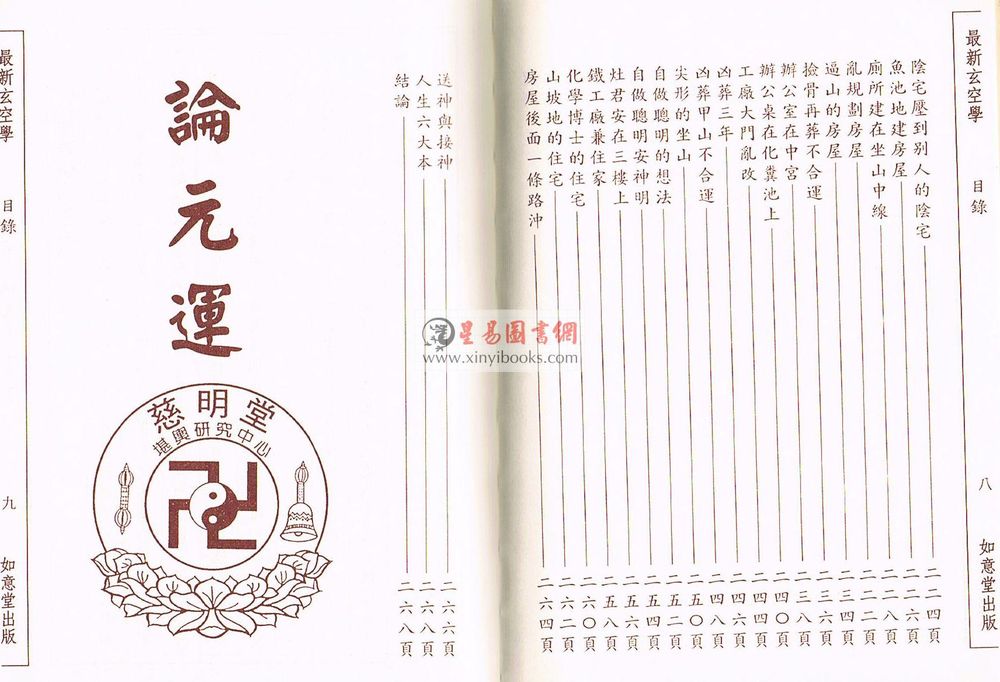 最新玄空學
目錄
八
如意堂出版
陰宅壓到別人的陰宅 二二四頁
魚池地建房屋 二二八頁
廁所建在坐山中線
亂規劃房屋 二三四頁
逼山的房屋 二三六頁
撿骨再葬不合運 二三八頁
辦公室在中宮 二四〇頁
辦公桌在化糞池上 二四四頁
工廠大門亂改
凶葬三年 二四六頁
凶葬甲山不合運 二四八頁
尖形的坐山 二五〇頁
自做聰明的想法 二五二頁
自做聰明安神明 二五四頁
灶君安在三樓上 二五六頁
鐵工廠兼住家 二五八頁
化學博士的住宅 二六〇頁
山坡地的住宅 二六二頁
房屋後面一條路沖 二六四頁
送神與接神 二六六頁
人生六大本 二六八頁
結論 二六八頁
論元運
慈明堂
堪輿研究中心
最新玄空學
目錄
九
如意堂出版
星易圖書網
www.xinyibooks.com